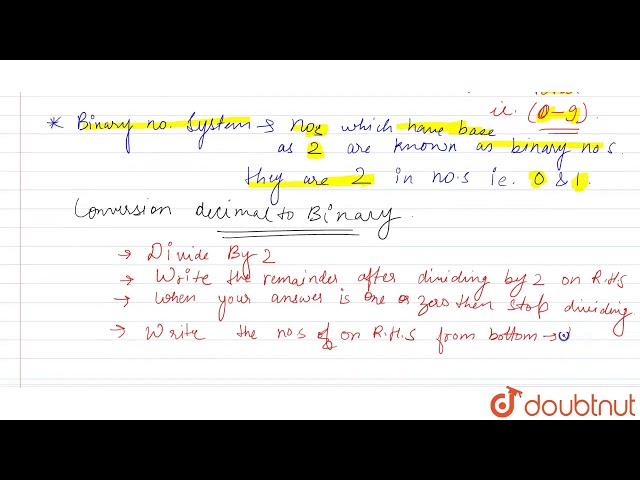 ie. (0-9).
* Binary no. System → nos which have base
as 2 are known as binary nos.
they are 2 in no.s ie. 0 & 1.
Conversion decimal to Binary.
→ Divide By 2
→ Write the remainder after dividing by 2 on R.H.S
→ When your answer is one or zero then stop dividing.
→ Write the nos of on R.H.S from bottom →
doubtnut